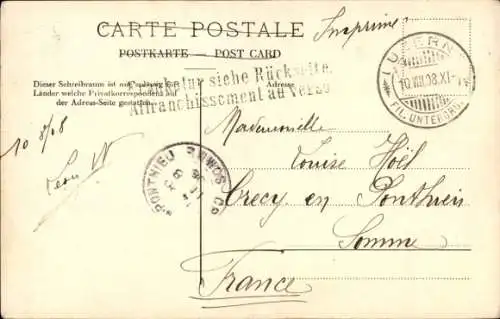 CARTE POSTALE
POSTKARTE — POST CARD
Imprimé
Frankatur siehe Rückseite.
Affranchissement au verso
Dieser Schreibraum ist nur für
Länder welche Privatkorrespondenz auf
der Adress-Seite gestatten.
Adresse
LUZERN
10.VIII.08.XI-
FIL. UNTERGRD.
10 8/08
Leon W
PONTHIEU
Mademoiselle
Louise Hoël
Crecy en Ponthieu
Somme
France